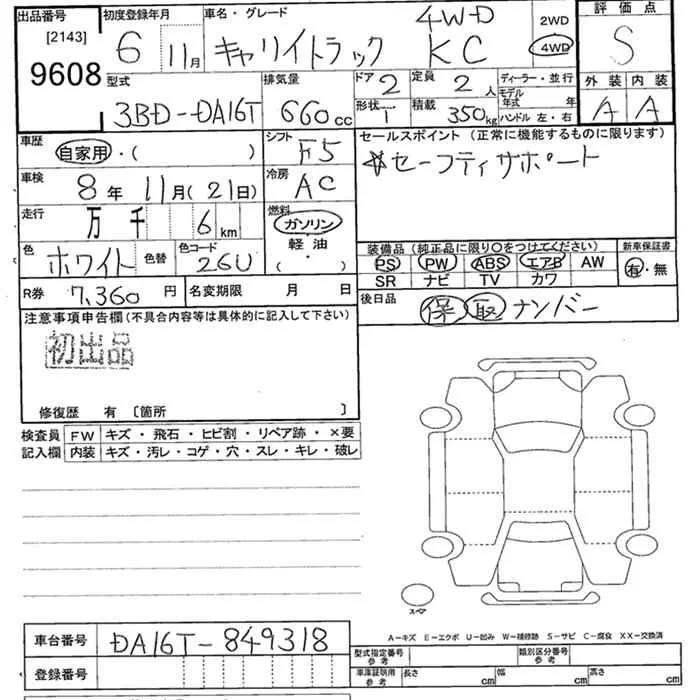 出品番号 初度登録年月 車名・グレード 4WD 2WD 評価点
[2143] 6 11月 キャリイトラック KC 4WD S
9608
型式 排気量 ドア 2 定員 2人 ディーラー・並行 外装 内装
3BD-DA16T 660cc 形状 1 積載 350kg モデル年式 年 A A
ハンドル 左・右
車歴 シフト セールスポイント (正常に機能するものに限ります)
自家用・( ) F5 ☆セーフティサポート
車検 冷房
8年 11月(21日) AC
走行 燃料
万 千 6km ガソリン
色 色替 色コード 軽油 装備品(純正品に限り○をつけてください) 新車保証書
ホワイト 26U ( ) PS PW ABS エアB AW 有・無
SR ナビ TV カワ
R券 7,360円 名変期限 月 日 後日品 保 取 ナンバー
注意事項申告欄(不具合内容等は具体的に記入して下さい)
初出品
修復歴 有 〔箇所 〕
検査員 FW キズ・飛石・ヒビ割・リペア跡・×要
記入欄 内装 キズ・汚レ・コゲ・穴・スレ・キレ・破レ
スペア
A-キズ E-エクボ U-凹み W-補修跡 S-サビ C-腐食 XX-交換済
車台番号 DA16T-849318 型式指定番号 参考 類別区分番号 参考
登録番号 車庫証明用 参考 長さ cm 幅 cm 高さ cm